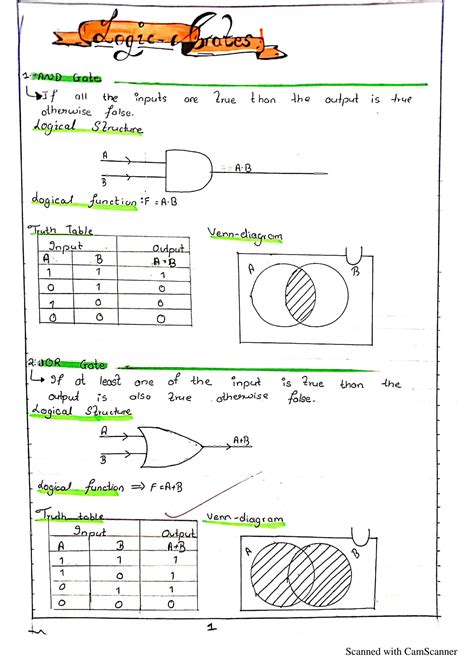 Logic-Gates
1: AND Gate
If all the inputs are true than the output is true
otherwise false.
Logical Structure
A
B
= A·B
Logical function: F = A·B
Truth Table
Venn-diagram
Input Output
A B A·B
1 1 1
0 1 0
1 0 0
0 0 0
A B
U
2: OR Gate
If at least one of the input is true than the
output is also true otherwise false.
Logical Structure
A
B
A+B
Logical function ⇒ F = A+B
Truth table
Venn-diagram
Input Output
A B A+B
1 1 1
1 0 1
0 1 1
0 0 0
A B
U
1
Scanned with CamScanner